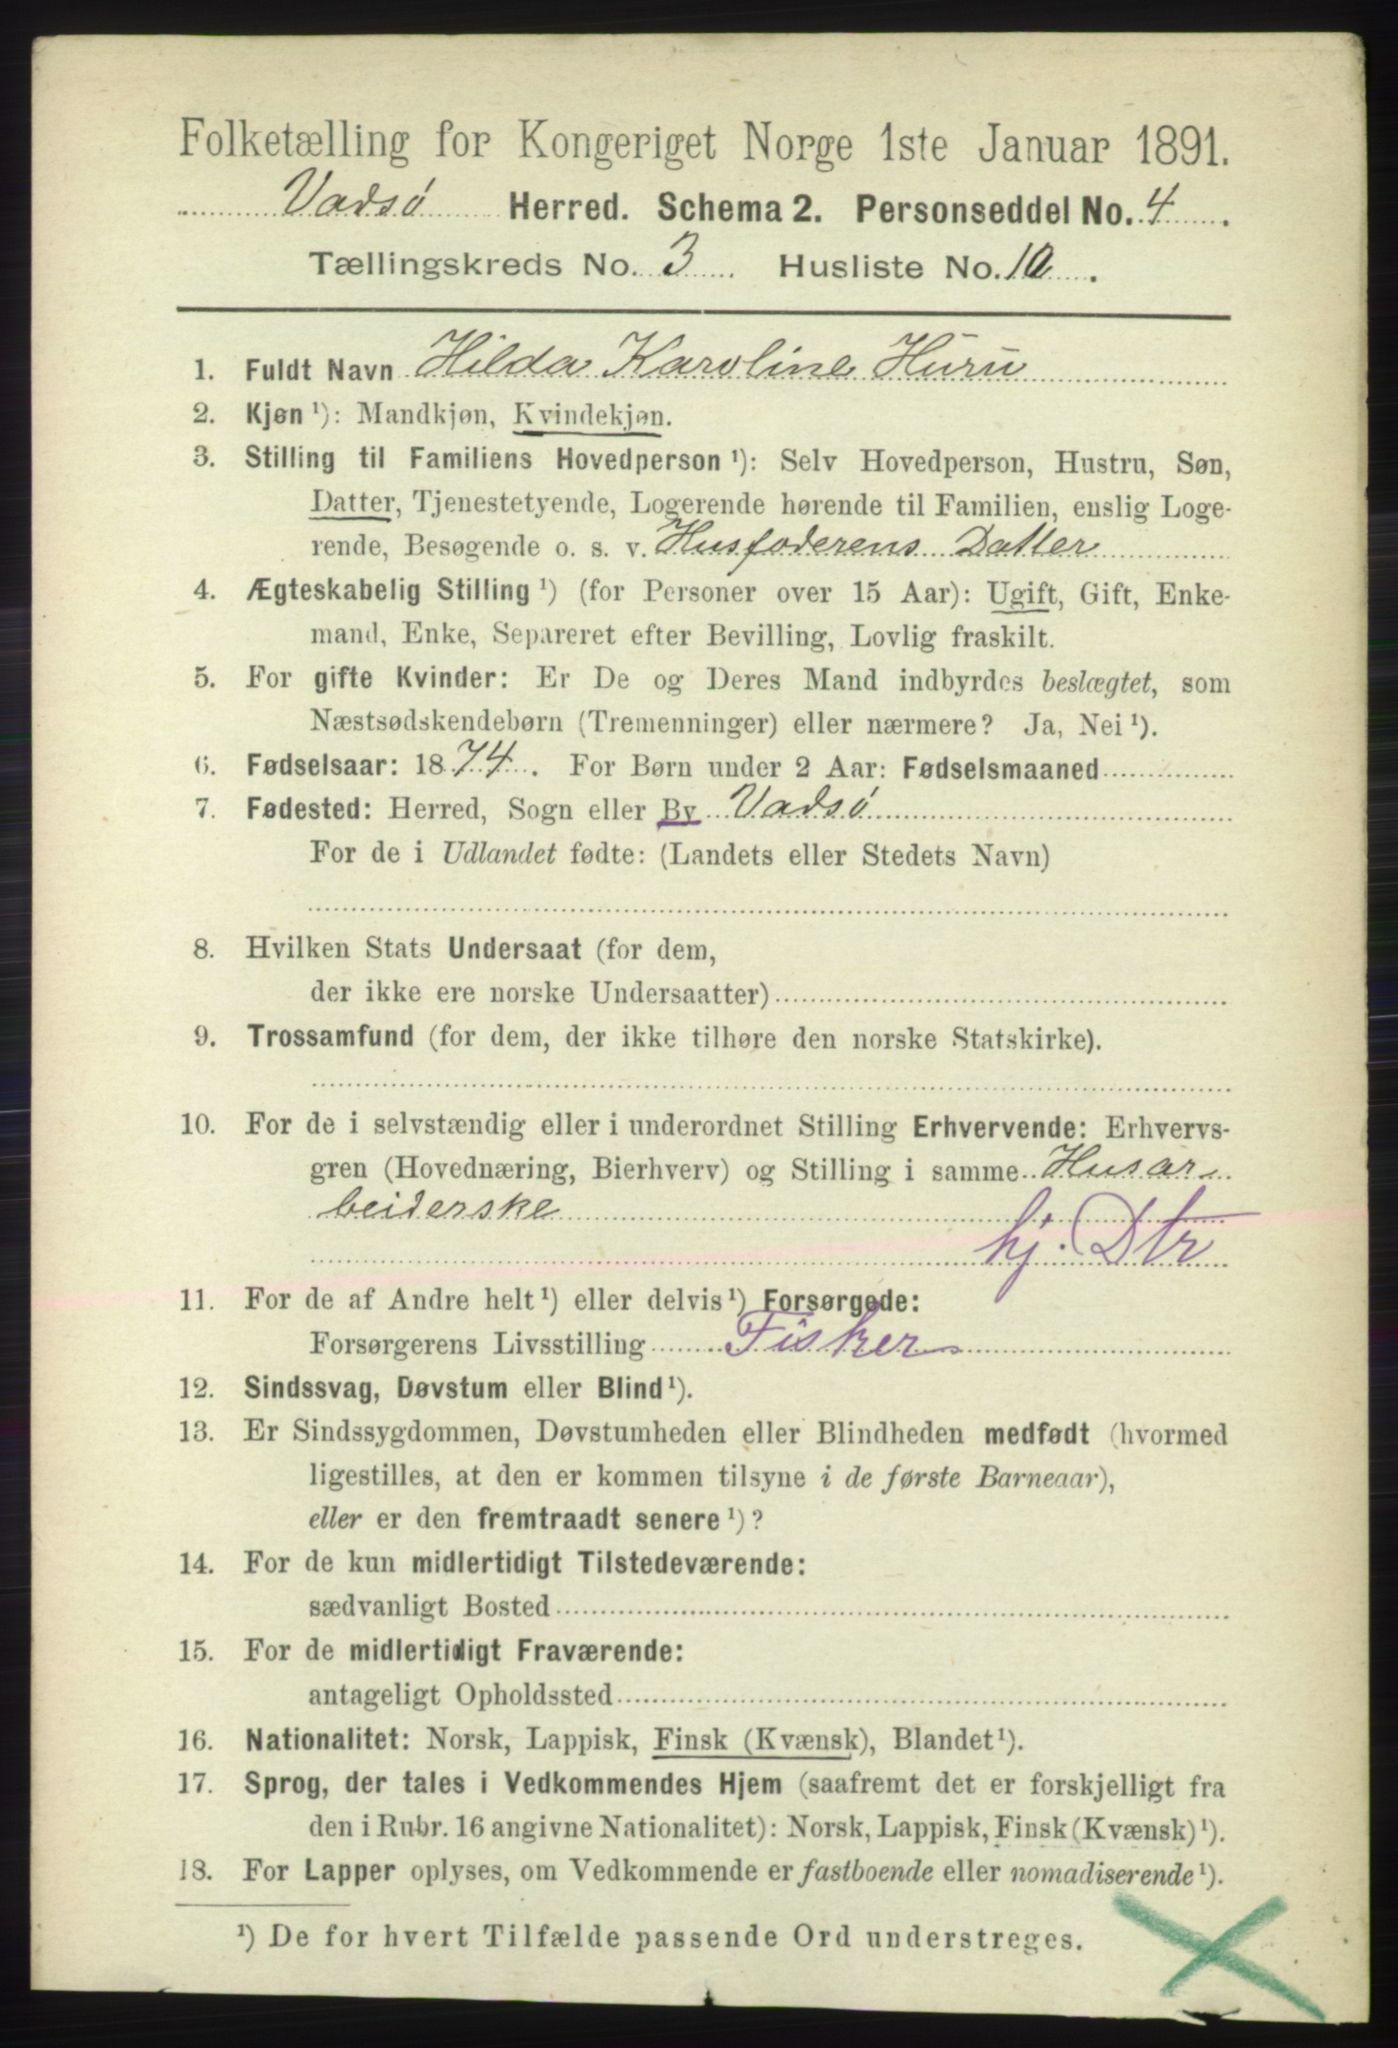 Folketælling for Kongeriget Norge 1ste Januar 1891.
Vadsø Herred. Schema 2. Personseddel No. 4.
Tællingskreds No. 3 Husliste No. 10.
1. Fuldt Navn Hilda Karoline Huru
2. Kjøn ¹): Mandkjøn, Kvindekjøn.
3. Stilling til Familiens Hovedperson ¹): Selv Hovedperson, Hustru, Søn,
Datter, Tjenestetyende, Logerende hørende til Familien, enslig Loge-
rende, Besøgende o. s. v. Husfaderens Datter
4. Ægteskabelig Stilling ¹) (for Personer over 15 Aar): Ugift, Gift, Enke-
mand, Enke, Separeret efter Bevilling, Lovlig fraskilt.
5. For gifte Kvinder: Er De og Deres Mand indbyrdes beslægtet, som
Næstsødskendebørn (Tremenninger) eller nærmere? Ja, Nei ¹).
6. Fødselsaar: 1874. For Børn under 2 Aar: Fødselsmaaned
7. Fødested: Herred, Sogn eller By Vadsø
For de i Udlandet fødte: (Landets eller Stedets Navn)
8. Hvilken Stats Undersaat (for dem,
der ikke ere norske Undersaatter)
9. Trossamfund (for dem, der ikke tilhøre den norske Statskirke).
10. For de i selvstændig eller i underordnet Stilling Erhvervende: Erhvervs-
gren (Hovednæring, Bierhverv) og Stilling i samme Husar-
beiderske
hj. Dtr
11. For de af Andre helt ¹) eller delvis ¹) Forsørgede:
Forsørgerens Livsstilling Fisker
12. Sindssvag, Døvstum eller Blind ¹).
13. Er Sindssygdommen, Døvstumheden eller Blindheden medfødt (hvormed
ligestilles, at den er kommen tilsyne i de første Barneaar),
eller er den fremtraadt senere ¹)?
14. For de kun midlertidigt Tilstedeværende:
sædvanligt Bosted
15. For de midlertidigt Fraværende:
antageligt Opholdssted
16. Nationalitet: Norsk, Lappisk, Finsk (Kvænsk), Blandet ¹).
17. Sprog, der tales i Vedkommendes Hjem (saafremt det er forskjelligt fra
den i Rubr. 16 angivne Nationalitet): Norsk, Lappisk, Finsk (Kvænsk) ¹).
18. For Lapper oplyses, om Vedkommende er fastboende eller nomadiserende ¹).
¹) De for hvert Tilfælde passende Ord understreges.